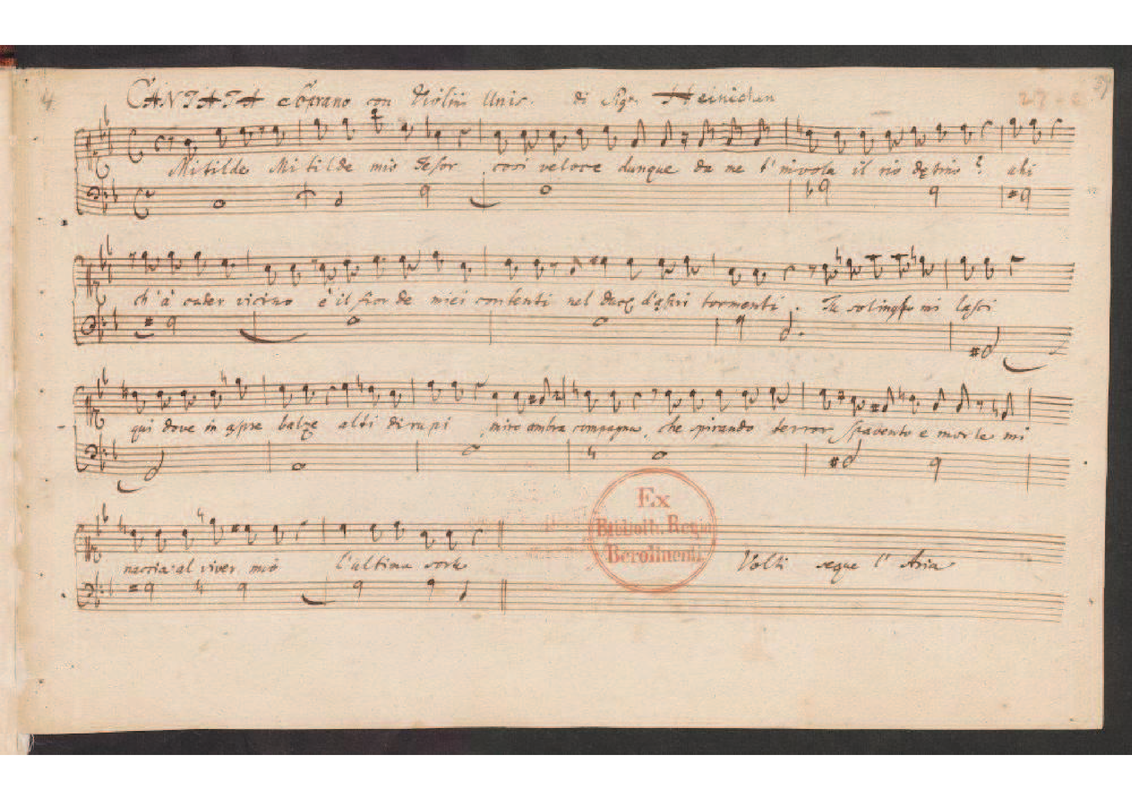 4.
CANTATA Soprano con Violin Unis. di Sigr. Heinichen
Mitilde Mitilde mio Tesor cosi veloce dunque da me t'invola il rio destino? ahi
ch'à cader vicino è il fior de miei contenti nel d'aspri tormenti. Tu solingho mi lasci
qui dove in aspre balze alti dirupi miro ombra compagna, che spirando terror spavento e morte mi
naccia al viver mio l'ultima sorte
Volti segue l'Aria
Ex
Biblioth. Regia
Berolinensi.